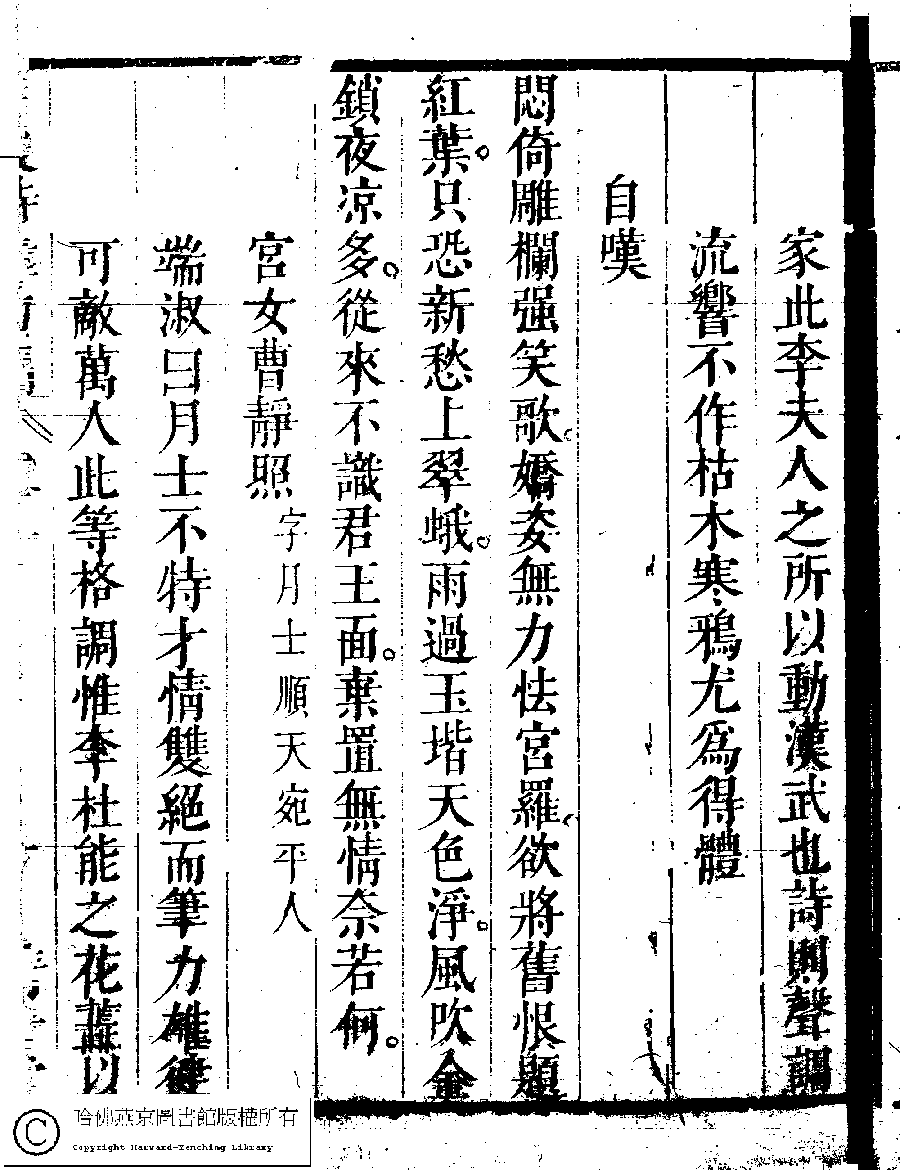 家此李夫人之所以動漢武也詩則聲調
流響不作枯木寒鴉尤爲得體
自嘆
悶倚雕欄强笑歌嬌姿無力怯宮羅欲將舊恨題
紅葉只恐新愁上翠蛾雨過玉堦天色淨風吹金
鎖夜凉多從來不識君王面棄置無情奈若何
宮女曹靜照 字月士順天宛平人
端淑曰月士不特才情雙絕而筆力雄健
可敵萬人此等格調惟李杜能之花蕋以
哈佛燕京圖書館版權所有
Copyright Harvard-Yenching Library